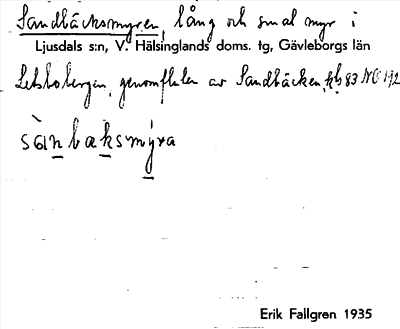 Sandbäcksmyren, lång och smal myr i
Ljusdals s:n, V. Hälsinglands doms. tg, Gävleborgs län
genomfluten av Sandbäcken, kbl 83 NO 192
sànbaksmýra
Erik Fallgren 1935